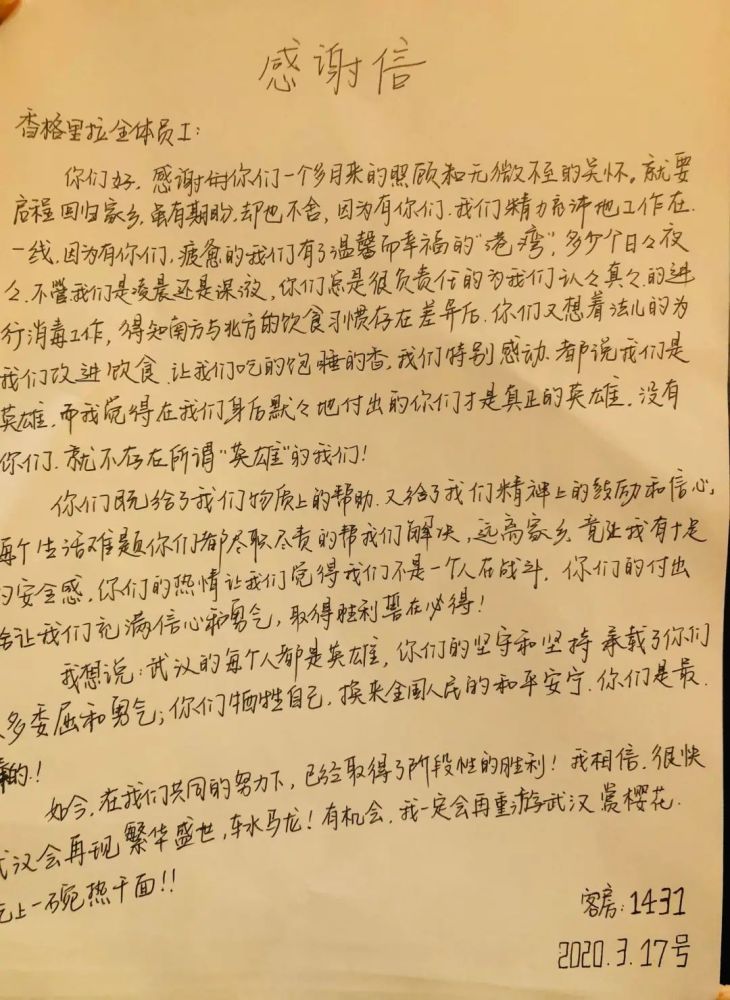 感谢信
香格里拉全体员工:
你们好,感谢你们一个多月来的照顾和无微不至的关怀。就要
启程回归家乡,虽有期盼,却也不舍,因为有你们.我们精力充沛地工作在
一线,因为有你们,疲惫的我们有了温馨而幸福的"港湾",多少个日々夜
々.不管我们是凌晨还是深夜,你们总是很负责任的为我们认々真々的进
行消毒工作,得知南方与北方的饮食习惯存在差异后.你们又想着法儿的为
我们改进饮食.让我们吃的饱睡的香,我们特别感动.都说我们是
英雄.而我觉得在我们身后默々地付出的你们才是真正的英雄.没有
你们.就不存在所谓"英雄"的我们!
你们既给了我们物质上的帮助.又给了我们精神上的鼓励和信心,
每个生活难题你们都尽职尽责的帮我们解决,远离家乡.竟让我有十足
的安全感.你们的热情让我们觉得我们不是一个人在战斗.你们的付出
会让我们充满信心和勇气,取得胜利誓在必得!
我想说:武汉的每个人都是英雄,你们的坚守和坚持承载了你们
多委屈和勇气;你们牺牲自己.换来全国人民的和平安宁.你们是最
的!
如今,在我们共同的努力下,已经取得了阶段性的胜利!我相信.很快
武汉会再现繁华盛世,车水马龙!有机会,我一定会再重游武汉赏樱花.
吃上一碗热干面!!
客房:1431
2020.3.17号